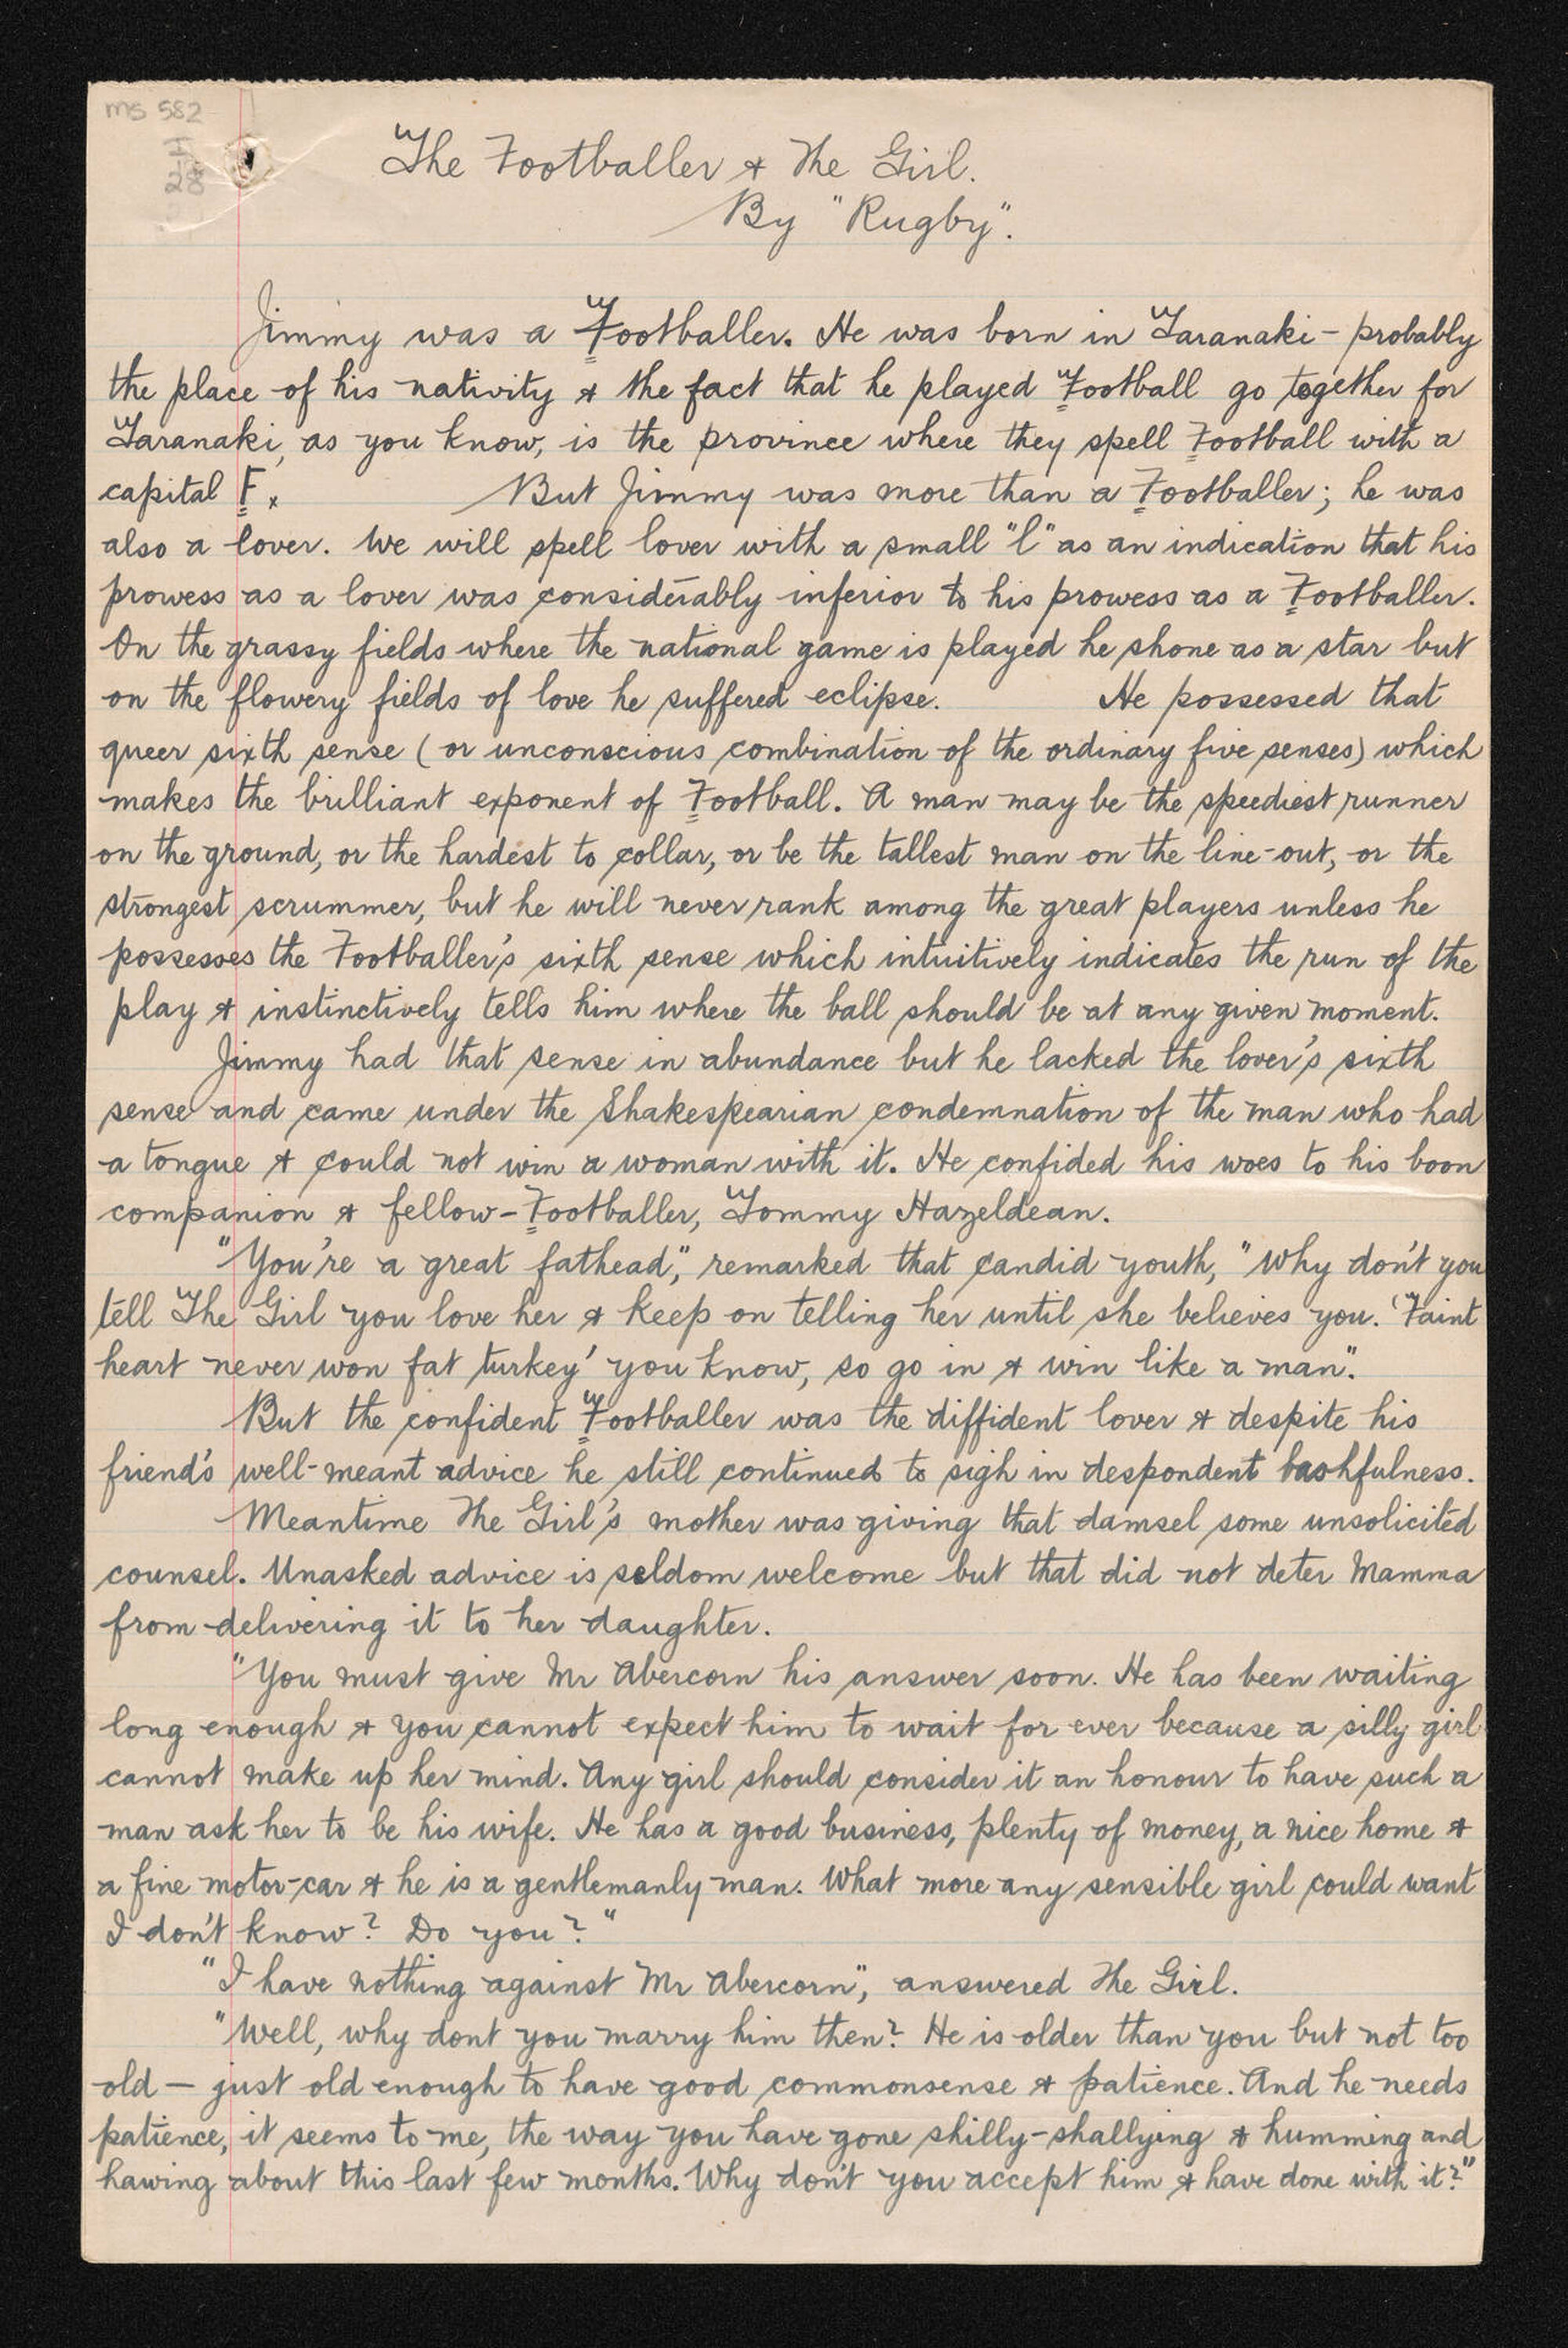 ms 582
I
28
The Footballer & The Girl.
By "Rugby".
Jimmy was a Footballer. He was born in Taranaki - probably
the place of his nativity & the fact that he played Football go together for
Taranaki, as you know, is the province where they spell Football with a
capital F. x But Jimmy was more than a Footballer; he was
also a lover. We will spell lover with a small "l" as an indication that his
prowess as a lover was considerably inferior to his prowess as a Footballer.
On the grassy fields where the national game is played he shone as a star but
on the flowery fields of love he suffered eclipse. He possessed that
queer sixth sense (or unconscious combination of the ordinary five senses) which
makes the brilliant exponent of Football. A man may be the speediest runner
on the ground, or the hardest to collar, or be the tallest man on the line-out, or the
strongest scrummer, but he will never rank among the great players unless he
possesses the Footballer's sixth sense which intuitively indicates the run of the
play & instinctively tells him where the ball should be at any given moment.
Jimmy had that sense in abundance but he lacked the lover's sixth
sense and came under the Shakespearian condemnation of the man who had
a tongue & could not win a woman with it. He confided his woes to his boon
companion & fellow-Footballer, Tommy Hazeldean.
"You're a great fathead", remarked that candid youth, "Why don't you
tell The Girl you love her & keep on telling her until she believes you. 'Faint
heart never won fat turkey' you know, so go in & win like a man".
But the confident Footballer was the diffident lover & despite his
friend's well-meant advice he still continued to sigh in despondent bashfulness.
Meantime The Girl's mother was giving that damsel some unsolicited
counsel. Unasked advice is seldom welcome but that did not deter Mamma
from delivering it to her daughter.
"You must give Mr Abercorn his answer soon. He has been waiting
long enough & you cannot expect him to wait for ever because a silly girl
cannot make up her mind. Any girl should consider it an honour to have such a
man ask her to be his wife. He has a good business, plenty of money, a nice home &
a fine motor-car & he is a gentlemanly man. What more any sensible girl could want
I don't know? Do you?"
"I have nothing against Mr Abercorn", answered The Girl.
"Well, why dont you marry him then? He is older than you but not too
old — just old enough to have good commonsense & patience. And he needs
patience, it seems to me, the way you have gone shilly-shallying & humming and
hawing about this last few months. Why don't you accept him & have done with it?"